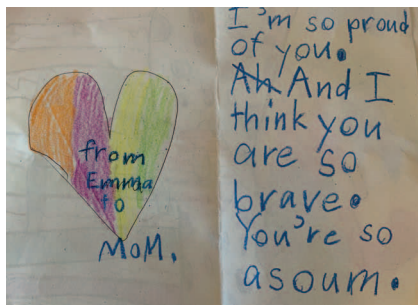 from
Emma
to
MOM.
I'm so proud
of you.
Ah And I
think you
are so
brave.
You're so
asoum.